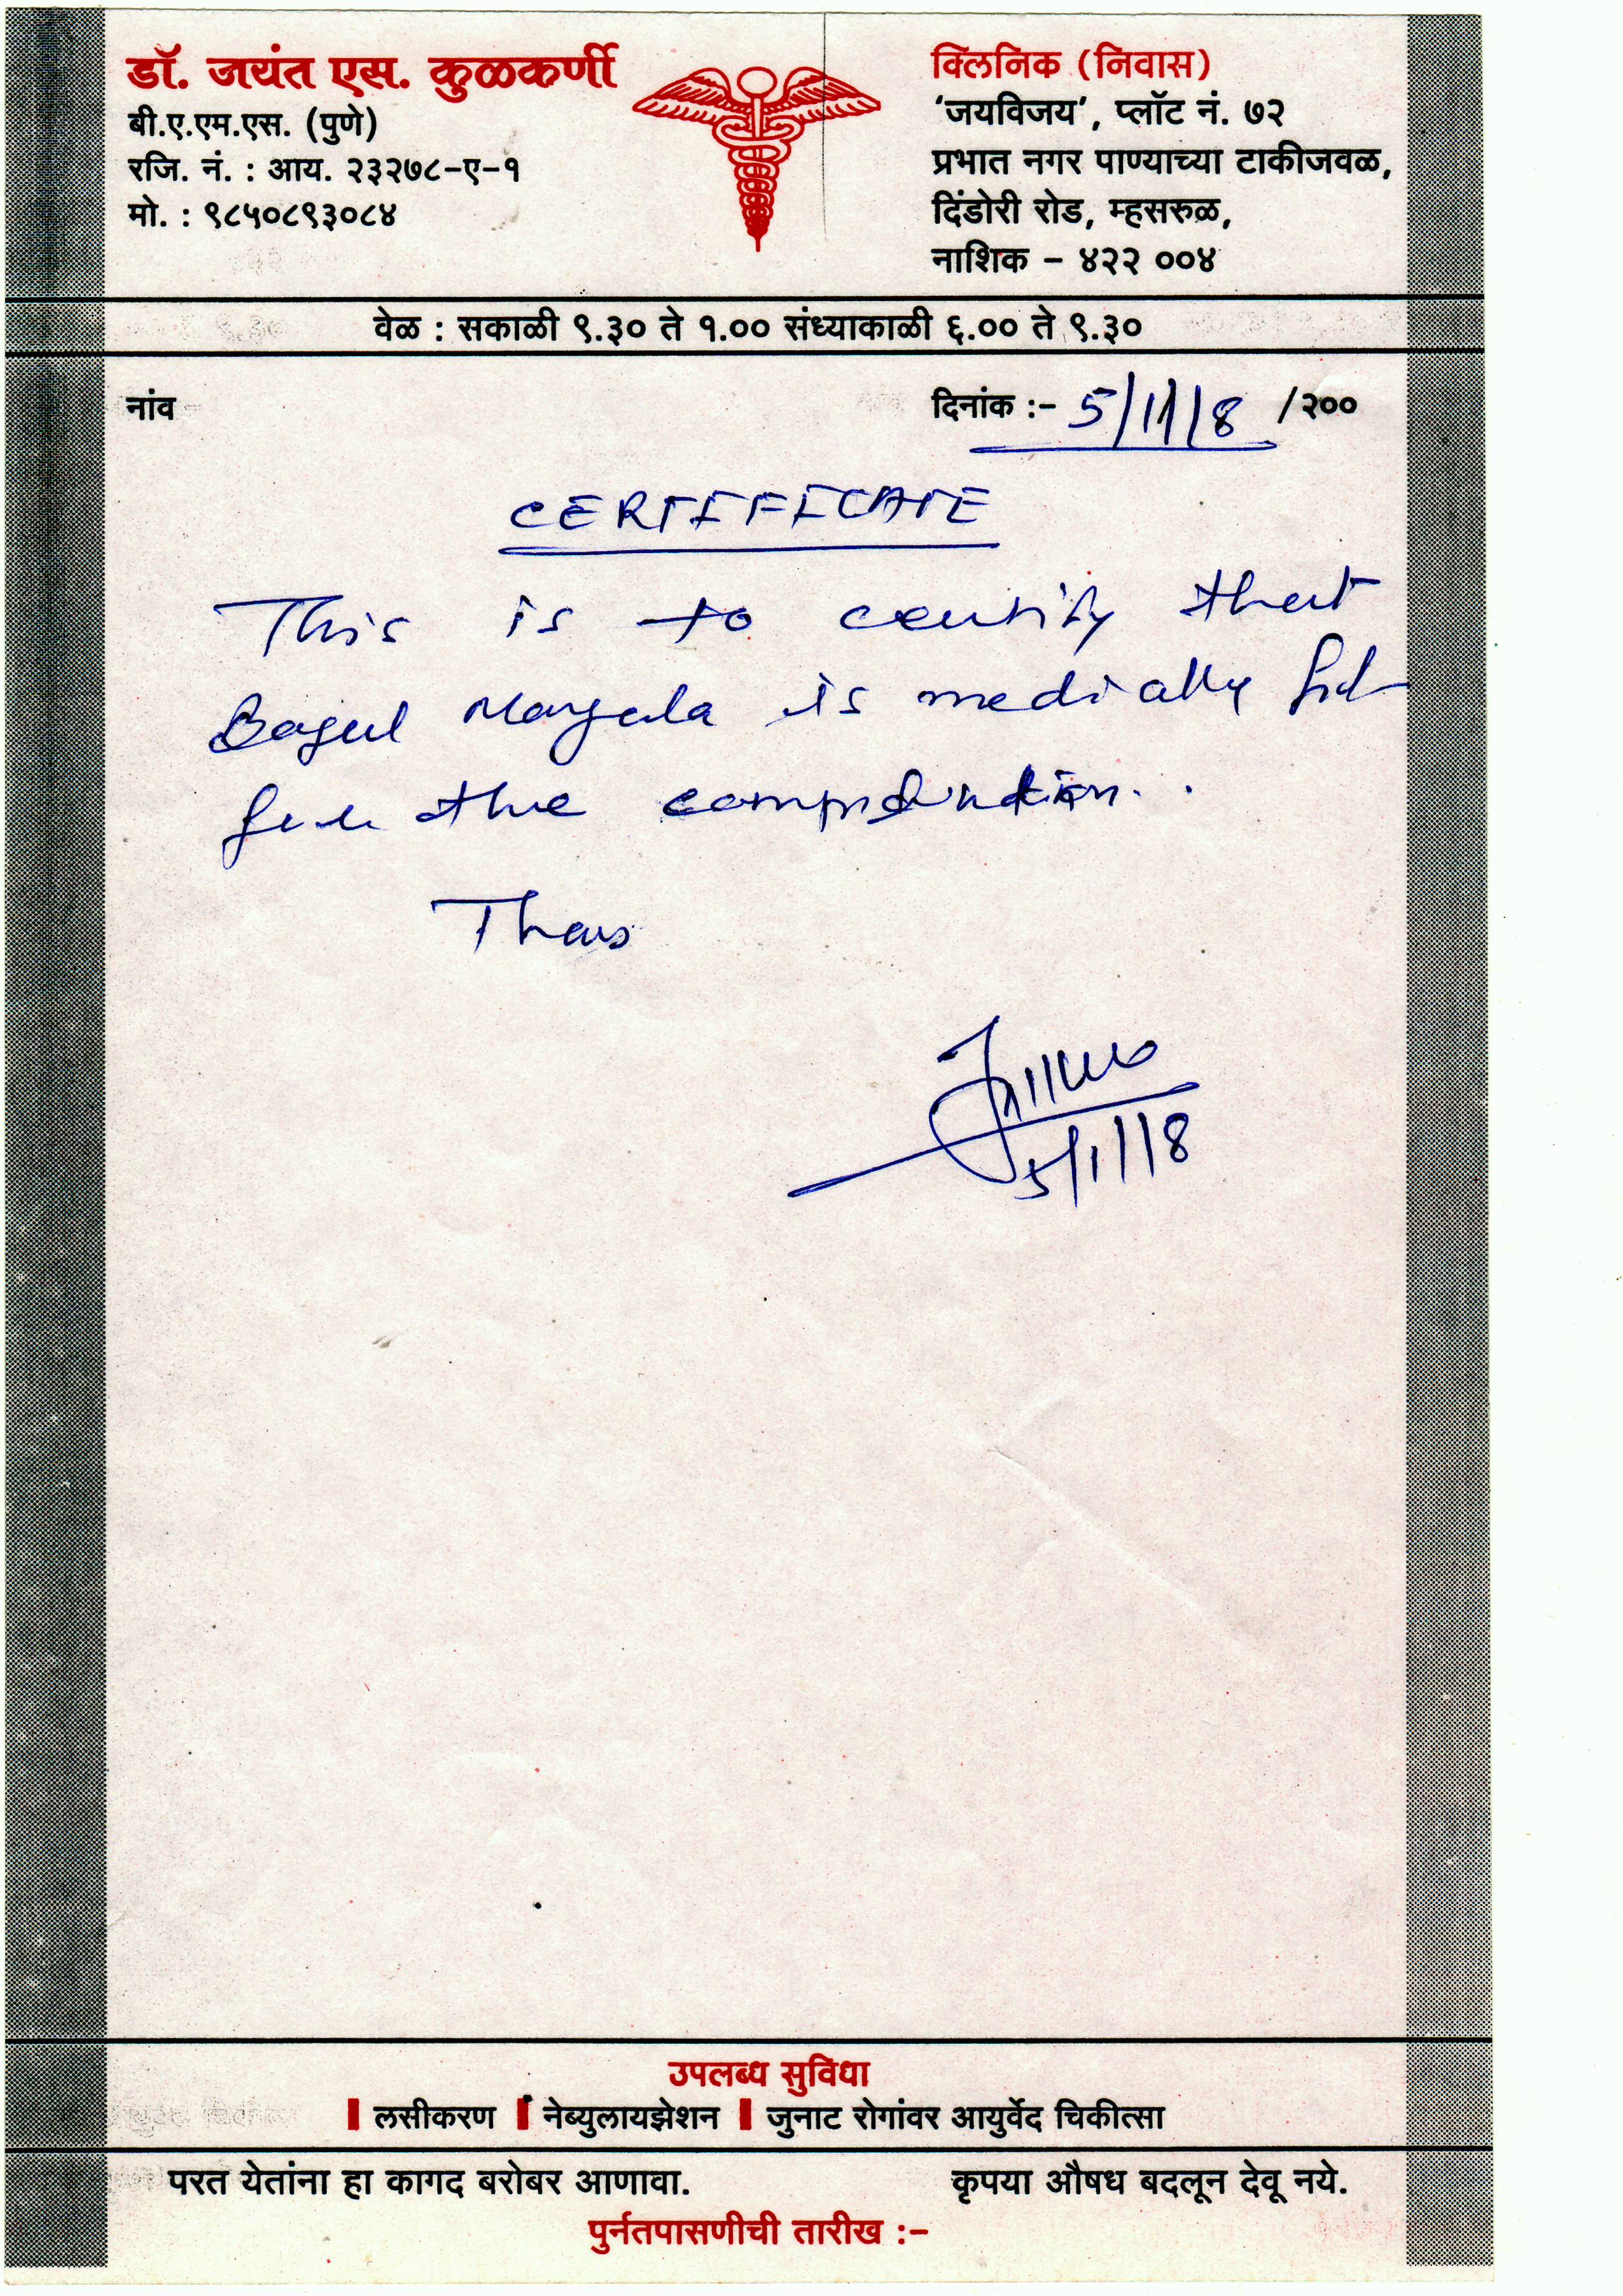 डॉ. जयंत एस. कुळकर्णी
बी.ए.एम.एस. (पुणे)
रजि. नं. : आय. २३२७८-ए-१
मो. : ९८५०८९३०८४
क्लिनिक (निवास)
'जयविजय', प्लॉट नं. ७२
प्रभात नगर पाण्याच्या टाकीजवळ,
दिंडोरी रोड, म्हसरुळ,
नाशिक - ४२२ ००४
वेळ : सकाळी ९.३० ते १.०० संध्याकाळी ६.०० ते ९.३०
नांव
दिनांक :- 5/11/8 /२००
CERTIFICATE
This is to certify that
Bagul is medically fit
for the
5/11/8
उपलब्ध सुविधा
लसीकरण नेब्युलायझेशन जुनाट रोगांवर आयुर्वेद चिकीत्सा
परत येतांना हा कागद बरोबर आणावा. कृपया औषध बदलून देवू नये.
पुर्नतपासणीची तारीख :-